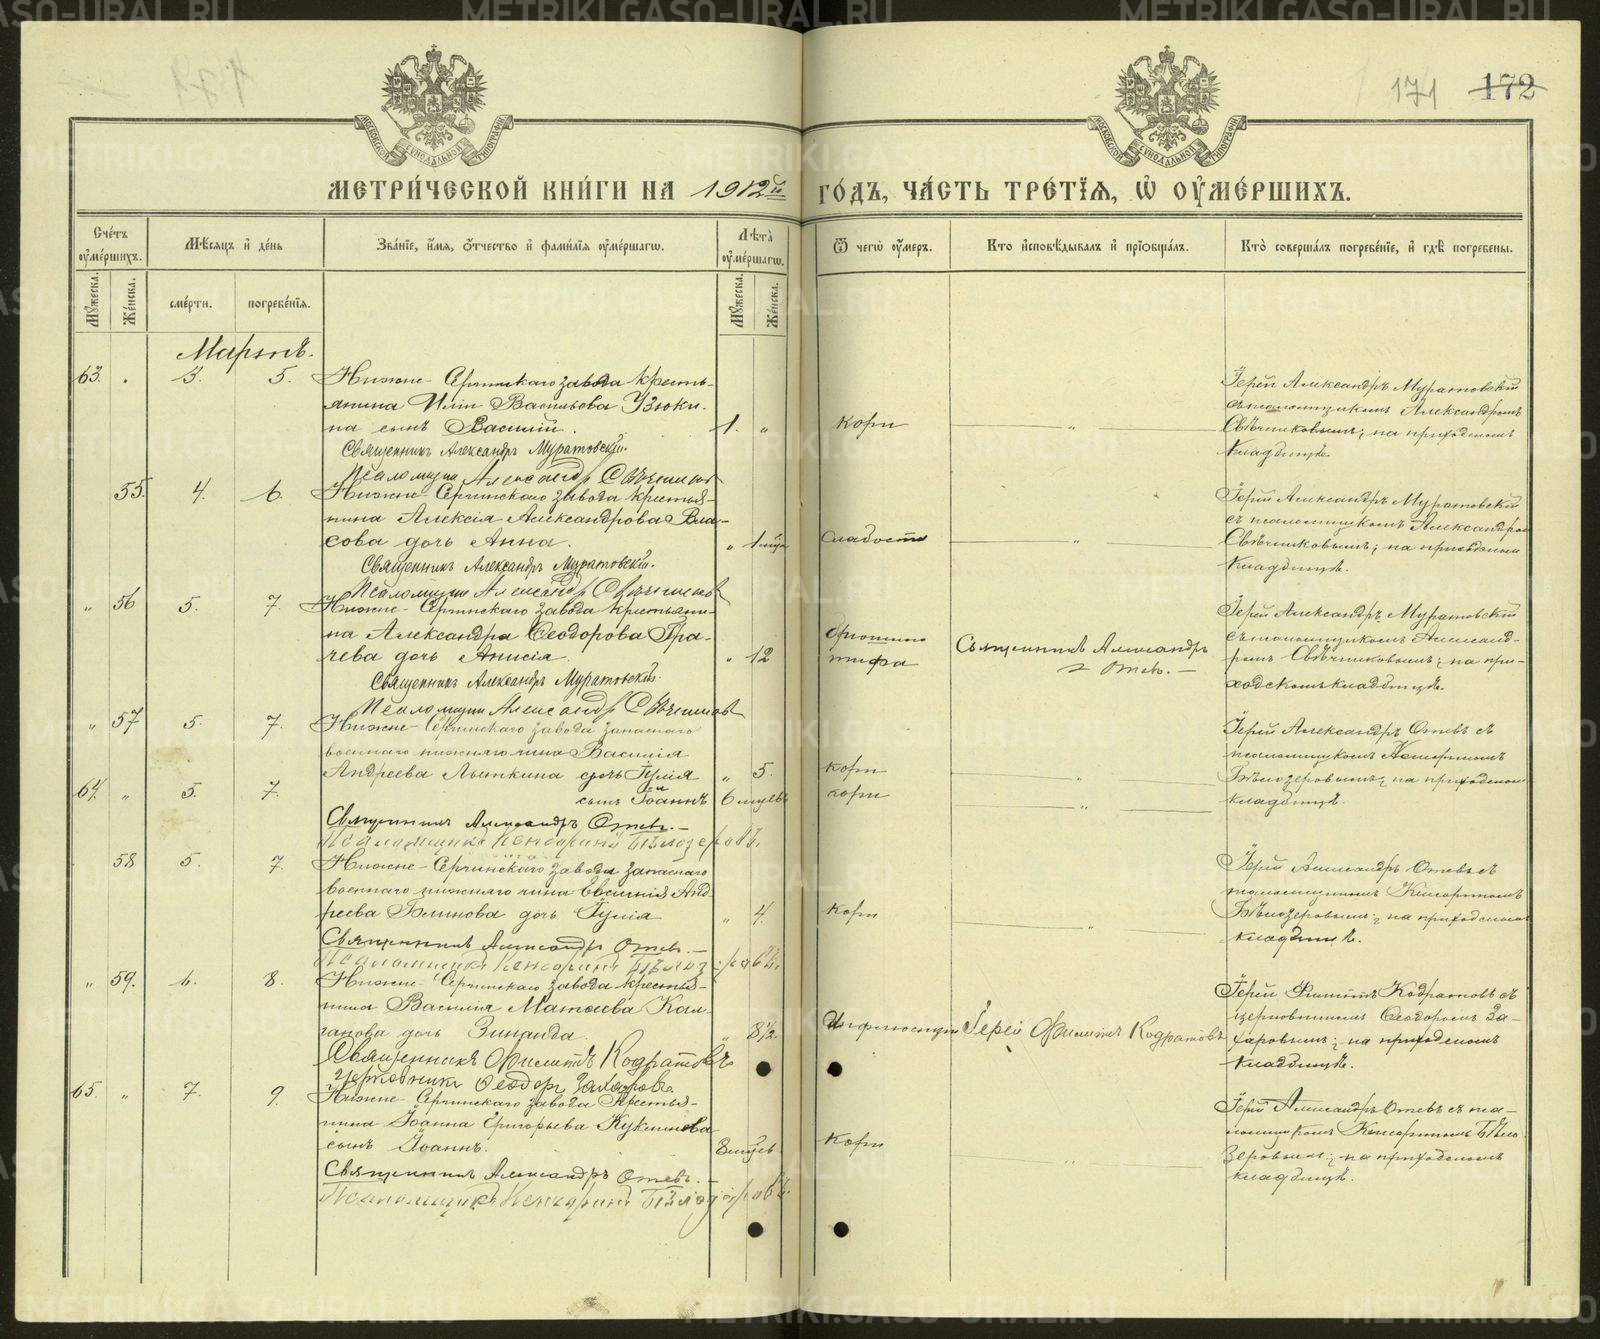 171 172
МЕТРИ́ЧЕСКОЙ КНИ́ГИ НА 1912й ГО́ДЪ, ЧА́СТЬ ТРЕ́ТЇѦ, Ѽ ОУ҆МЕ́РШИХЪ.
Счетъ оумершихъ.
Мѣсяцъ и день
Званіе, имя, отчество и фамилія оумершаго.
Лѣта оумершаго.
Ѿ чего оумеръ.
Кто исповѣдывалъ и пріобщалъ.
Кто совершалъ погребеніе, и гдѣ погребены.
Мужеска.
Женска.
смерти.
погребенія.
Мужеска.
Женска.
Мартъ.
63. 3. 5. Нижне-Сергинскаго завода кресть-
янина Иліи Васильева Узюки-
на сынъ Василій. 1. „ Кори
Священникъ Александръ Муратовскій.
Псаломщикъ Александръ Свѣчниковъ
Іерей Александръ Муратовскій
съ псаломщикомъ Александромъ
Свѣчниковымъ; на приходскомъ
кладбищѣ.
55. 4. 6. Нижне-Сергинскаго завода крестья-
нина Алексія Александрова Вла-
сова дочь Анна. „ 1 мѣся Слабости
Священникъ Александръ Муратовскій.
Псаломщикъ Александръ Свѣчниковъ
Іерей Александръ Муратовскій
съ псаломщикомъ Александром
Свѣчниковымъ; на приходском
кладбищѣ.
„ 56 5. 7. Нижне-Сергинскаго завода крестьяни-
на Александра Ѳеодорова Гра-
чева дочь Анисія. „ 12 брюшного
тифа
Священникъ Александръ Муратовскій.
Псаломщикъ Александръ Свѣчниковъ
Священникъ Александръ
Отевъ.
Іерей Александръ Муратовскій
съ псаломщикомъ Александ-
ромъ Свѣчниковымъ; на при-
ходскомъ кладбищѣ.
„ 57 5. 7. Нижне-Сергинскаго завода запаснаго
военнаго нижняго чина Василія
Андреева Лыткина дочь Іулія „ 5. Кори
64. „ 5. 7. сынъ Іоаннъ 6 мѣсяцевъ кори
Священникъ Александръ Отевъ.
Псаломщикъ Кенсоринъ Бѣлозеровъ.
Іерей Александръ Отевъ съ
псаломщикомъ Кенсориномъ
Бѣлозеровымъ; на приходском
кладбищѣ.
58 5. 7. Нижне-Сергинскаго завода запаснаго
военнаго нижняго чина Евсигнія Анд-
реева Блинова дочь Іулія „ 4. Кори
Священникъ Александръ Отевъ.
Псаломщикъ Кенсоринъ Бѣлозеровъ.
Іерей Александръ Отевъ съ
псаломщикомъ Кенсориномъ
Бѣлозеровымъ; на приходском
кладбищѣ.
„ 59. 6. 8. Нижне-Сергинскаго завода крестья-
нина Василія Матѳеева Кал-
ганова дочь Зинаида „ 8½. Инфлюэнціи
Священникъ Филиппъ Кодратовъ
Церковникъ Ѳеодоръ Захаровъ.
Іерей Филиппъ Кодратовъ
Іерей Филиппъ Кодратовъ съ
церковникомъ Ѳеодоромъ За-
харовымъ; на приходскомъ
кладбищѣ.
65. „ 7. 9. Нижне-Сергинскаго завода крестья-
нина Іоанна Григорьева Куклинова
сынъ Іоаннъ. 8 мѣсяц Кори
Священникъ Александръ Отевъ.
Псаломщикъ Кенсоринъ Бѣлозеровъ.
Іерей Александръ Отевъ съ пса-
ломщикомъ Кенсориномъ Бѣло
зеровымъ; на приходскомъ
кладбищѣ.
METRIKI.GASO-URAL.RU